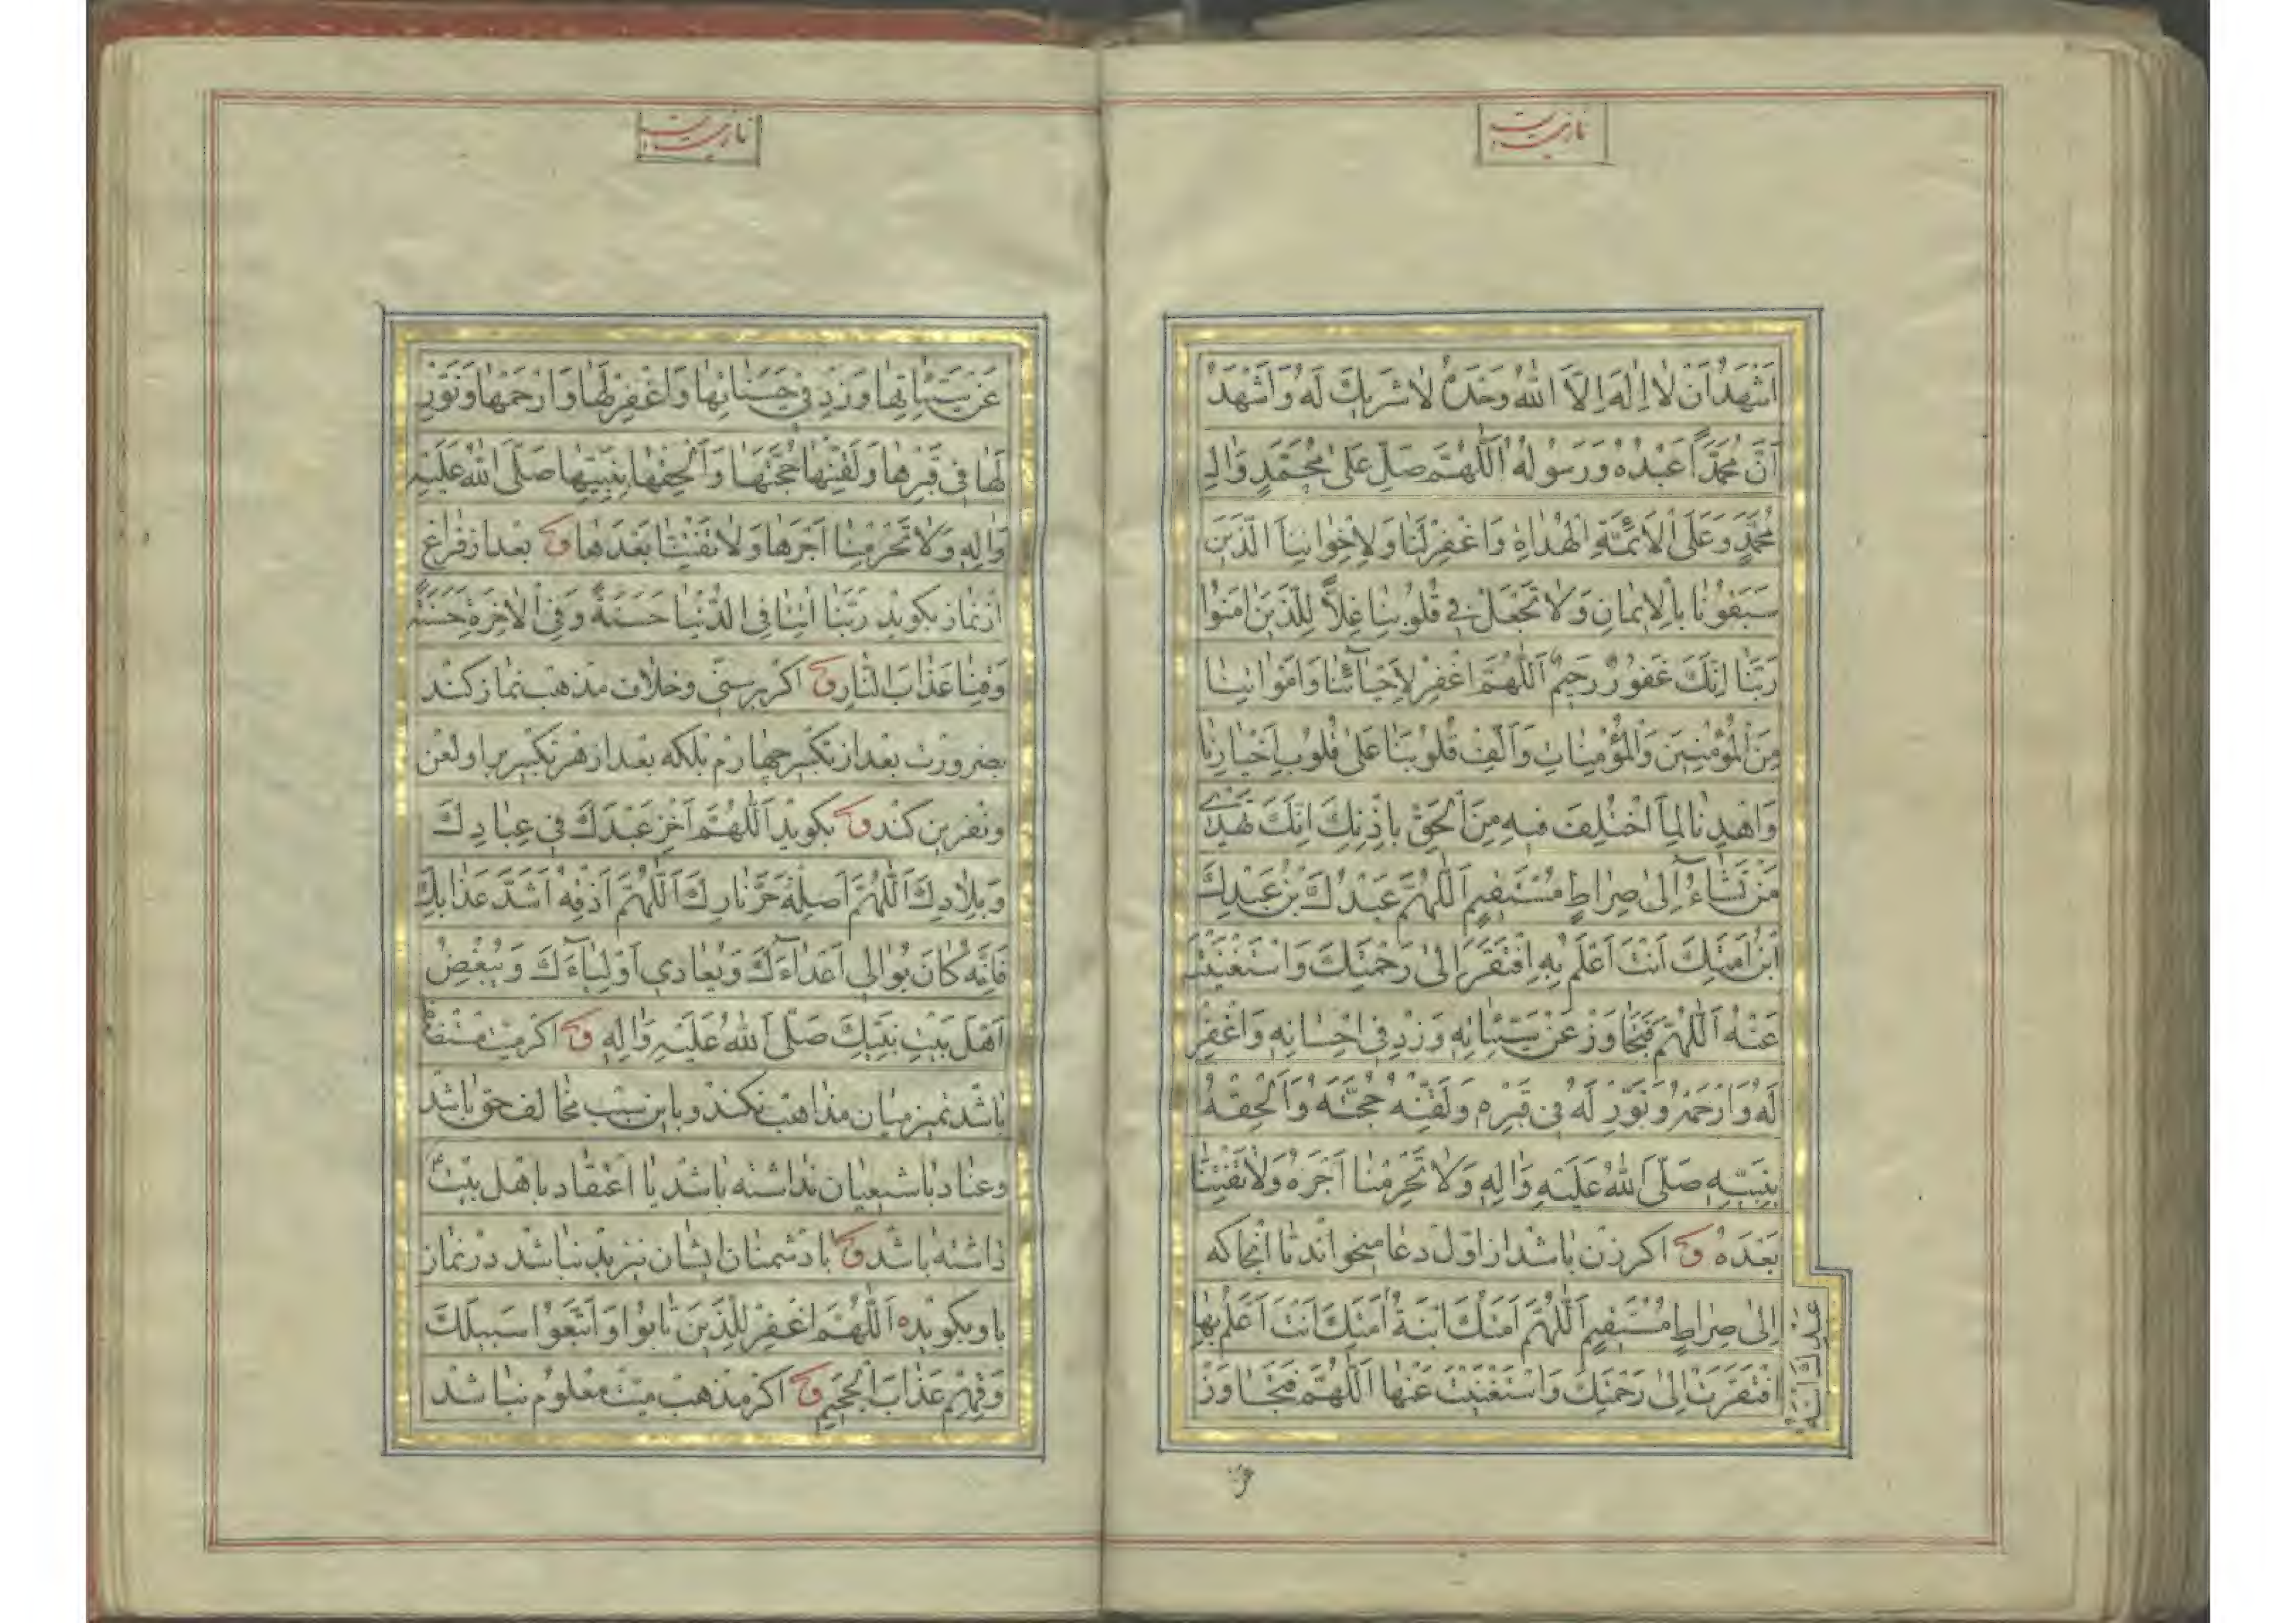 نماز میت
اَشْهَدُ اَنْ لٰا اِلٰهَ اِلَّا اللّٰهُ وَحْدَهُ لٰا شَرِيكَ لَهُ وَاَشْهَدُ
اَنَّ مُحَمَّدًا عَبْدُهُ وَرَسُولُهُ اَللّٰهُمَّ صَلِّ عَلٰى مُحَمَّدٍ وَاٰلِ
مُحَمَّدٍ وَعَلَى الْاَئِمَّةِ الْهُدٰاةِ وَاغْفِرْ لَنٰا وَلِاِخْوٰانِنَا الَّذِينَ
سَبَقُونٰا بِالْاِيمٰانِ وَلٰا تَجْعَلْ فِي قُلُوبِنٰا غِلًّا لِلَّذِينَ اٰمَنُوا
رَبَّنٰا اِنَّكَ غَفُورٌ رَحِيمٌ اَللّٰهُمَّ اغْفِرْ لِاَحْيٰائِنٰا وَاَمْوٰاتِنٰا
مِنَ الْمُؤْمِنِينَ وَالْمُؤْمِنٰاتِ وَاَلِّفْ قُلُوبَنٰا عَلٰى قُلُوبِ اَخْيٰارِنٰا
وَاهْدِنٰا لِمَا اخْتُلِفَ فِيهِ مِنَ الْحَقِّ بِاِذْنِكَ اِنَّكَ تَهْدِي
مَنْ تَشٰاءُ اِلٰى صِرٰاطٍ مُسْتَقِيمٍ اَللّٰهُمَّ عَبْدُكَ بْنُ عَبْدِكَ
ابْنُ اَمَتِكَ اَنْتَ اَعْلَمُ بِهِ اِفْتَقَرَ اِلٰى رَحْمَتِكَ وَاسْتَغْنَيْتَ
عَنْهُ اَللّٰهُمَّ فَتَجٰاوَزْ عَنْ سَيِّئٰاتِهِ وَزِدْ فِي اِحْسٰانِهِ وَاغْفِرْ
لَهُ وَارْحَمْهُ وَنَوِّرْ لَهُ فِي قَبْرِهِ وَلَقِّنْهُ حُجَّتَهُ وَاَلْحِقْهُ
بِنَبِيِّهِ صَلَّى اللّٰهُ عَلَيْهِ وَاٰلِهِ وَلٰا تَحْرِمْنٰا اَجْرَهُ وَلٰا تَفْتِنّٰا
بَعْدَهُ ق اكر زن باشد از اوّل دعا ميخواند تا انجا كه
اِلٰى صِرٰاطٍ مُسْتَقِيمٍ اَللّٰهُمَّ اَمَتُكَ ابْنَةُ اَمَتِكَ اَنْتَ اَعْلَمُ بِهٰا
افْتَقَرَتْ اِلٰى رَحْمَتِكَ وَاسْتَغْنَيْتَ عَنْهٰا اَللّٰهُمَّ فَتَجٰاوَزْ
نماز میت
عَنْ سَيِّئٰاتِهٰا وَزِدْ فِي حَسَنٰاتِهٰا وَاغْفِرْ لَهٰا وَارْحَمْهٰا وَنَوِّرْ
لَهٰا فِي قَبْرِهٰا وَلَقِّنْهٰا حُجَّتَهٰا وَاَلْحِقْهٰا بِنَبِيِّهٰا صَلَّى اللّٰهُ عَلَيْهِ
وَاٰلِهِ وَلٰا تَحْرِمْنٰا اَجْرَهٰا وَلٰا تَفْتِنّٰا بَعْدَهٰا ق بعد از فراغ
از نماز بكويد رَبَّنٰا اٰتِنٰا فِي الدُّنْيٰا حَسَنَةً وَفِي الْاٰخِرَةِ حَسَنَةً
وَقِنٰا عَذٰابَ النّٰارِ ق اكر بر سنّى وخلاف مذهب نماز كند
بضرورت بعد از تكبير چهارم بلكه بعد از هر تكبير بر او لعن
ونفرين كند ق بكويد اَللّٰهُمَّ اَخْزِ عَبْدَكَ فِي عِبٰادِكَ
وَبِلٰادِكَ اَللّٰهُمَّ اَصْلِهْ حَرَّ نٰارِكَ اَللّٰهُمَّ اَذِقْهُ اَشَدَّ عَذٰابِكَ
فَاِنَّهُ كٰانَ يُوٰالِي اَعْدٰاءَكَ وَيُعٰادِي اَوْلِيٰاءَكَ وَيُبْغِضُ
اَهْلَ بَيْتِ نَبِيِّكَ صَلَّى اللّٰهُ عَلَيْهِ وَاٰلِهِ ق اكر ميّت مستضعف
باشد تميز ميان مذاهب نكند وباين سبب مخالف حق باشد
وعناد با شيعيان نداشته باشد يا اعتقاد باهل بيت
داشته باشد ق با دشمنان ايشان نيز بد نباشد در نماز
او بكويد اَللّٰهُمَّ اغْفِرْ لِلَّذِينَ تٰابُوا وَاتَّبَعُوا سَبِيلَكَ
وَقِهِمْ عَذٰابَ الْجَحِيمِ ق اكر مذهب ميّت معلوم نباشد